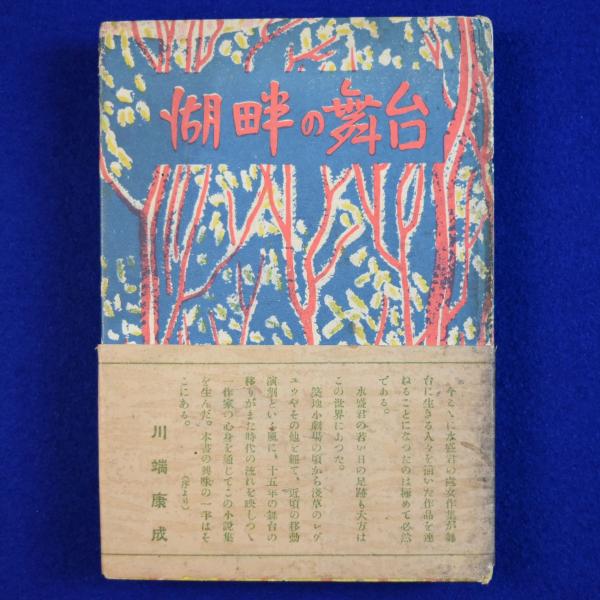 湖畔の舞台
今こゝに水盛君の處女作集が舞
台に生きる人々を描いた作品を連
ねることになつたのは極めて必然
である。
水盛君の若い日の足跡も大方は
この世界にあつた。
築地小劇場の頃から淺草のレヴ
ユウやその他を經て、近頃の移動
演劇といふ風に、十五年の舞台の
移りがまた時代の流れを映しつゝ
作家の心身を通じてこの小説集
を生んだ。本書の興味の一半はそ
こにある。
(序より)
川端康成